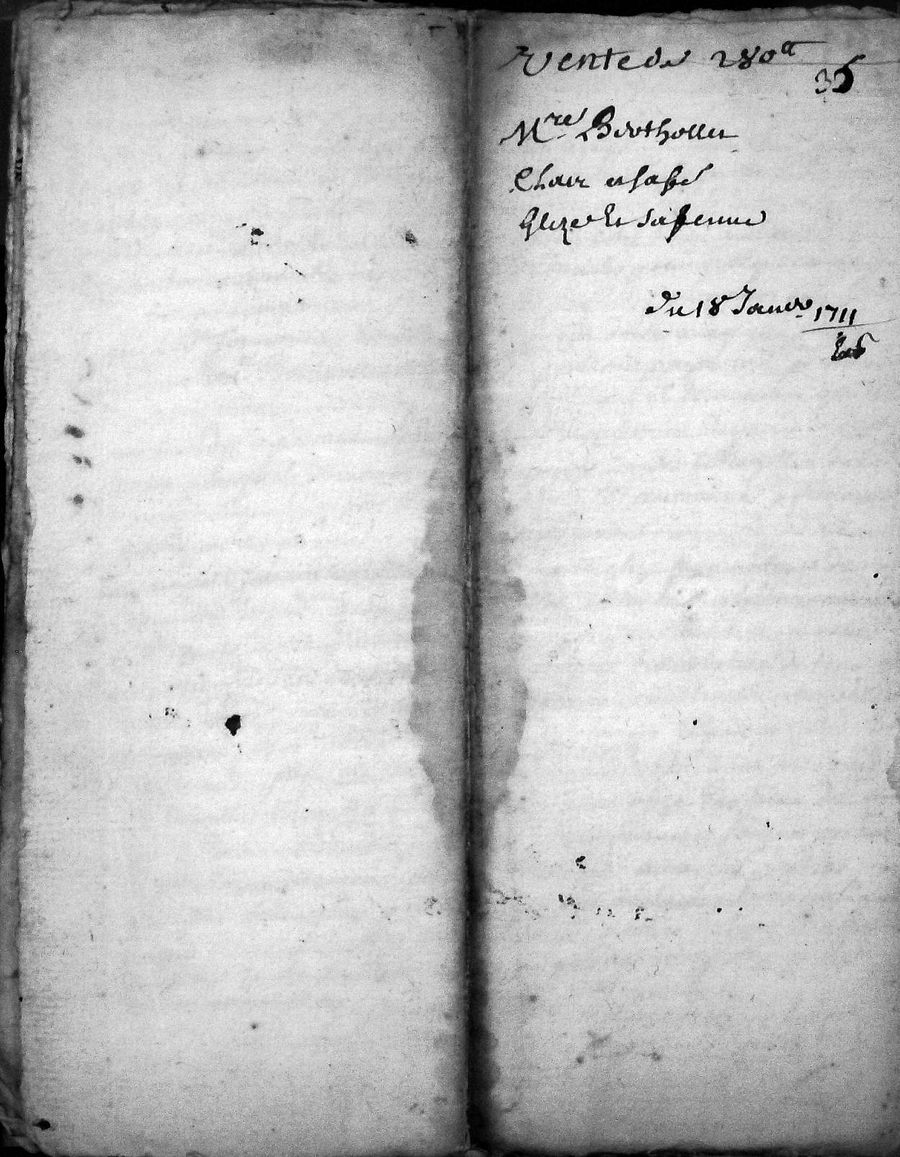 Vente de 280ᵗᵗ
36
Mre Bertholler
Chair et
Gleze Et sa femme
du 18 Janvr 1711